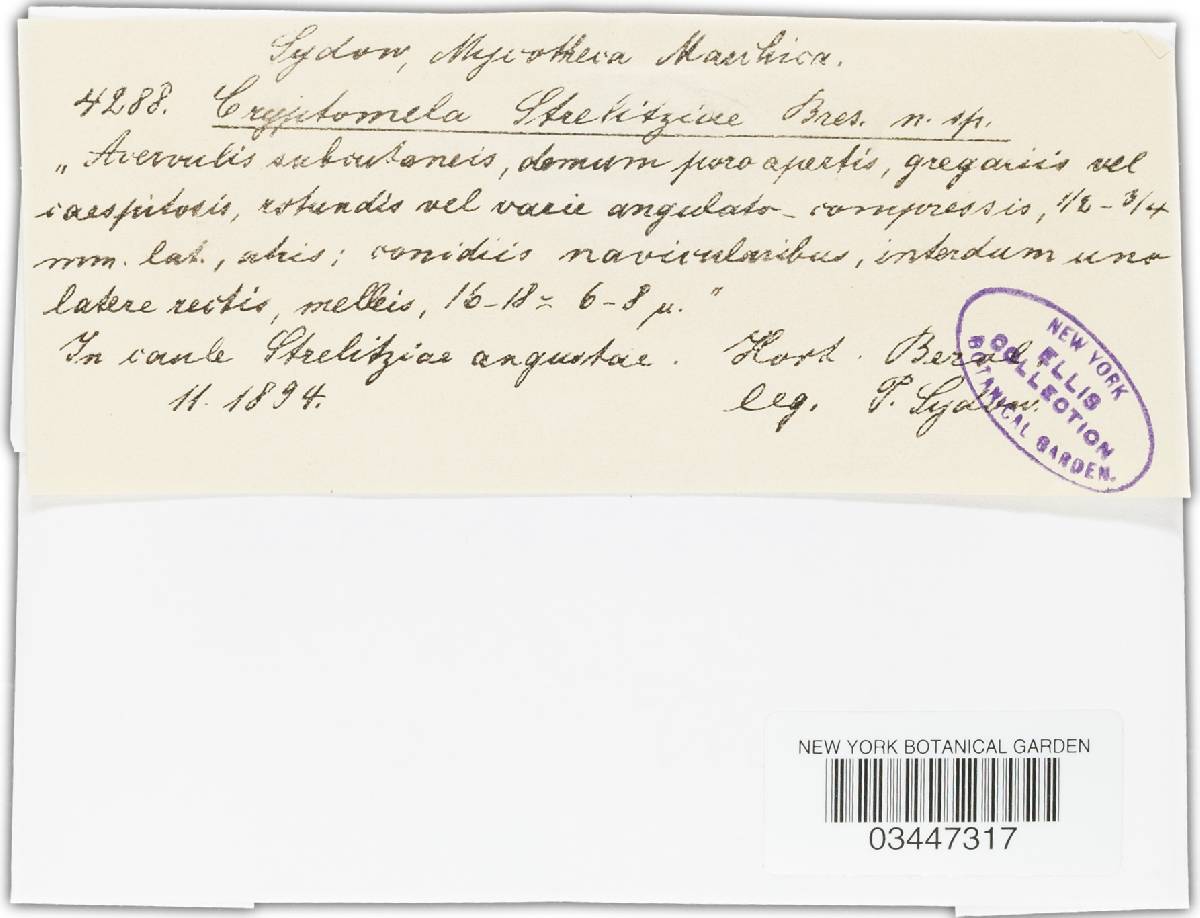 Sydow, Mycotheca Marchica.
4288. Cryptomela Strelitziae Bres. n. sp.
„Acervulis subcutaneis, demum poro apertis, gregariis vel
caespitosis, rotundis vel varie angulato-compressis, 1/2-3/4
mm. lat., atris; conidiis navicularibus, interdum uno
latere rectis, melleis, 16-18 = 6-8 µ."
In caule Strelitziae angustae. Hort. Berol.
11. 1894. leg. P. Sydow.
NEW YORK
BOTANICAL GARDEN.
ELLIS
COLLECTION
NEW YORK BOTANICAL GARDEN
03447317